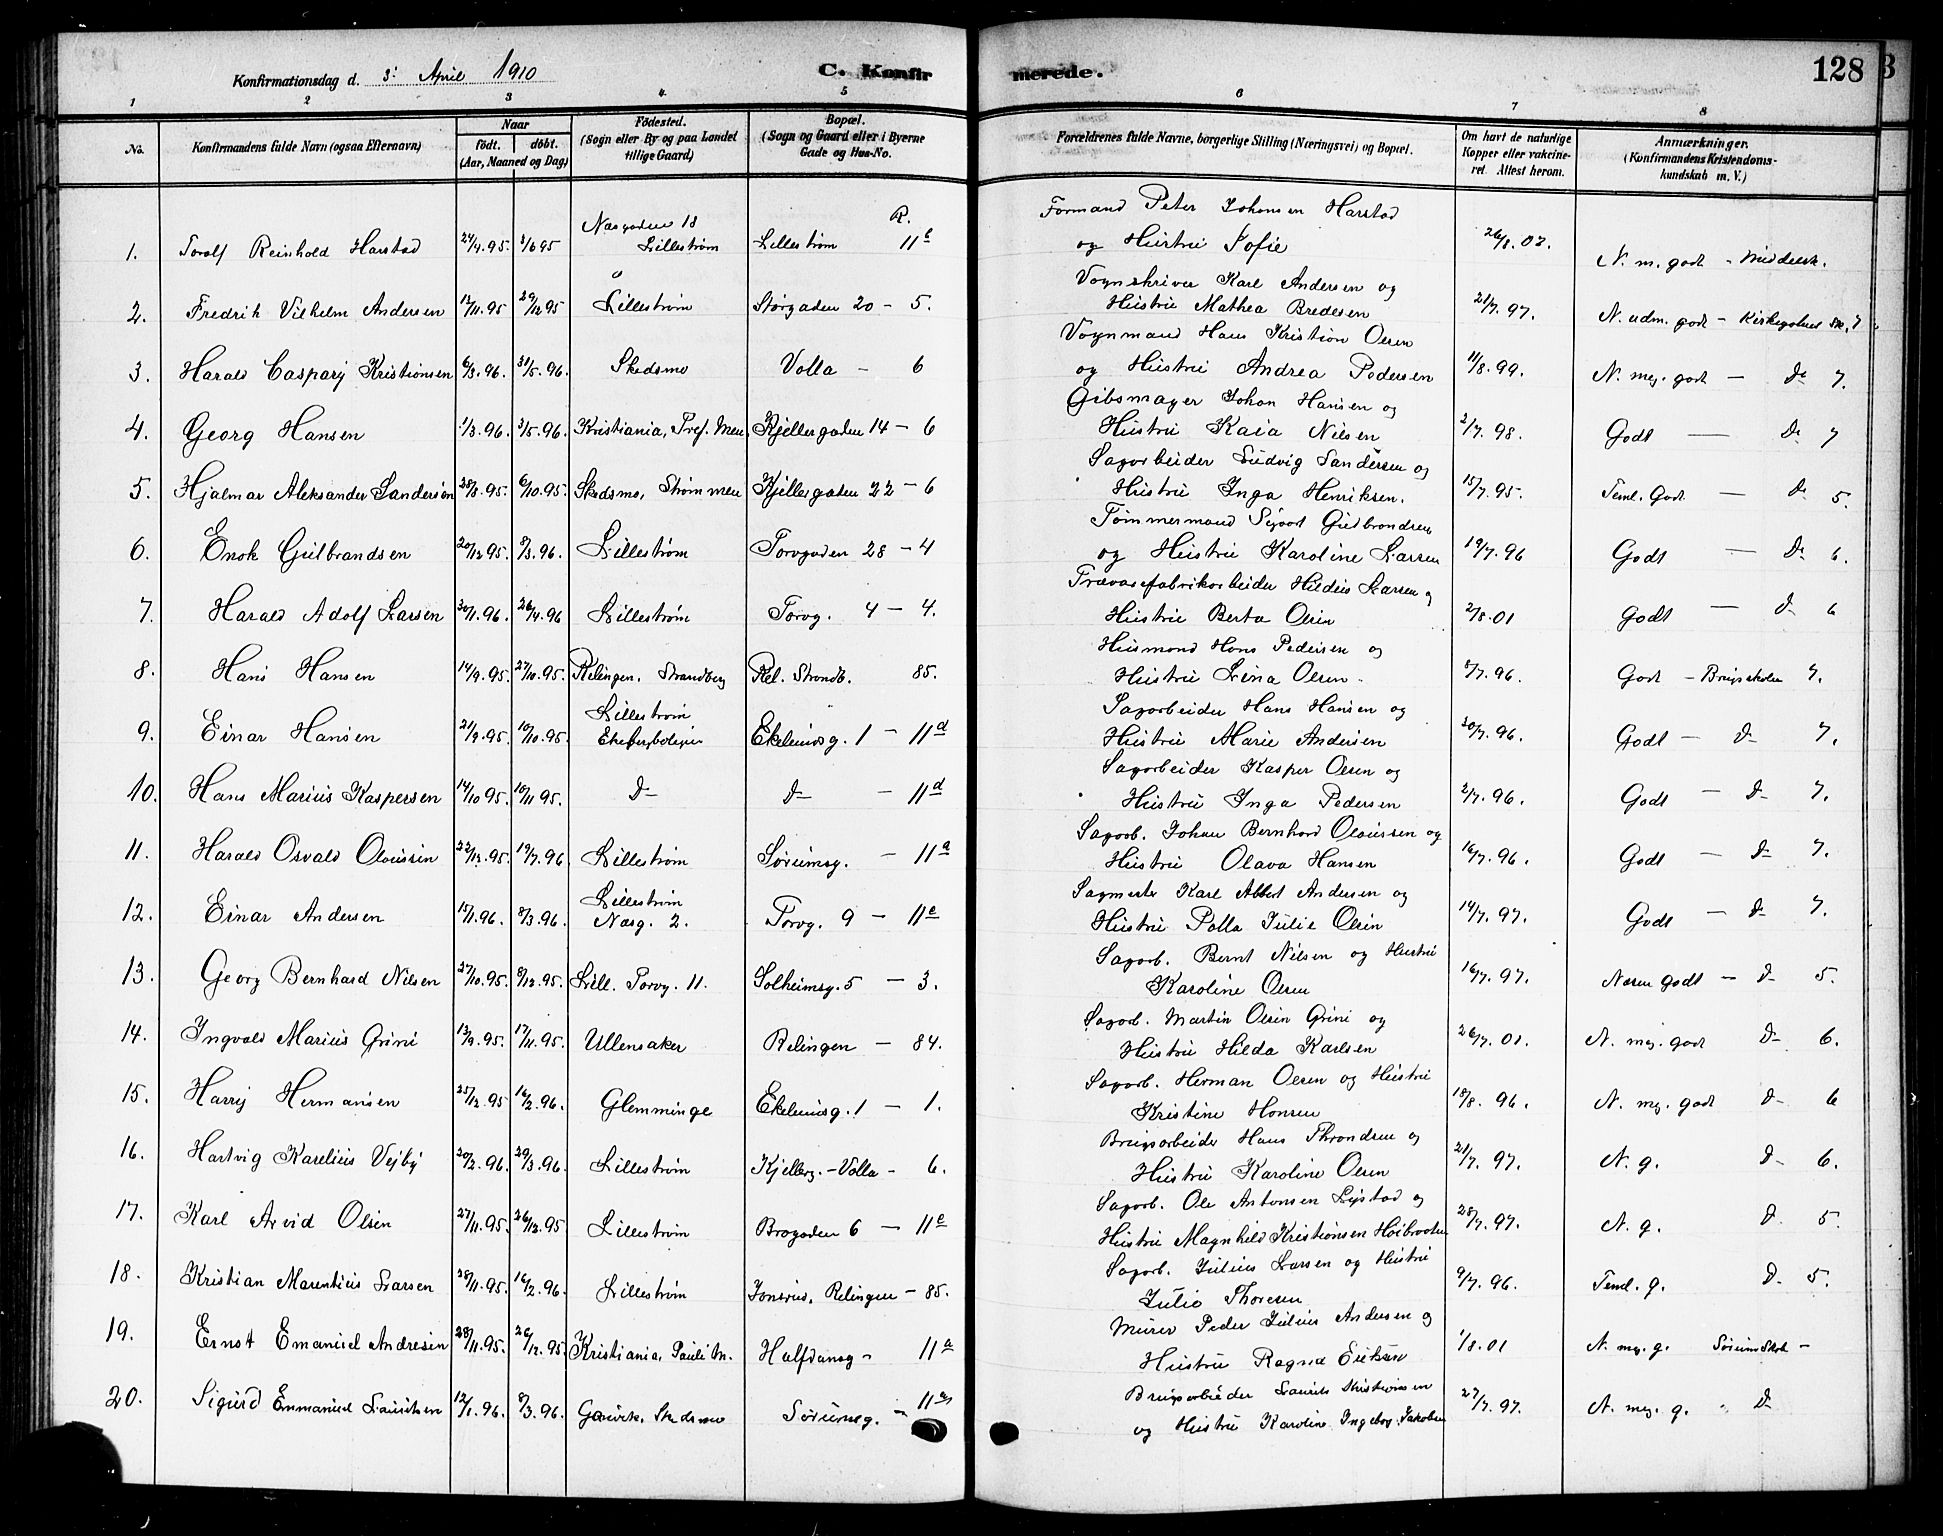 Konfirmationsdag d. 3' April 1910
C. Konfirmerede.
128
1 2 3 4 5 6 7 8
No.
Konfirmandens fulde Navn (ogsaa Efternavn)
Naar
födt. döbt.
(Aar, Maaned og Dag)
Födested.
(Sogn eller By og paa Landet
tillige Gaard)
Bopæl.
(Sogn og Gaard eller i Byerne
Gade og Hus-No.
Forældrenes fulde Navne, borgerlige Stilling (Næringsvei) og Bopæl.
Om havt de naturlige
Kopper eller vakcine-
ret Attest herom.
Anmærkninger.
(Konfirmandens Kristendoms-
kundskab m. V.)
Nasgaden 18 R. Formand Peter Johansen Harstad
1. Torolf Reinhold Harstad 24/4.95. 1/6 95 Lillestrøm Lillestrøm 11b og Hustru Sofie 26/8.02. N. m. godt - Middelsk.
Vognskriver Karl Andersen og
2. Fredrik Vilhelm Andersen 12/11.95 29/12 95 Lillestrøm Storgaden 20 - 5. Hustru Mathea Bredesen 21/7.97. N. udm. godt - Kirkegatens Sk. 7
Vognmand Hans Kristian Olsen
3. Harald Caspary Kristiansen 6/3.96. 31/5.96. Skedsmo Volla - 6 og Hustru Andrea Pedersen 11/8.99. N. meg. godt - Do 7.
Gibsmager Johan Hansen og
4. Georg Hansen 1/3.96. 3/5.96. Kristiania, Tref. Men. Kjellergaden 14 - 6 Hustru Kaia Nilsen 2/7.98. Godt - Do 7
Sagarbeider Ludvig Sandersen og
5. Hjalmar Aleksander Sandersen 28/8.95. 6/10.95. Skedsmo, Strømmen Kjellergaden 22 - 6 Hustru Inga Henriksen. 15/7.95. Teml. Godt - Do 5.
Tømmermand Sigvart Gulbrandsen
6. Enok Gulbrandsen 20/12 95. 8/3.96. Lillestrøm Torvgaden 28 - 4 og Hustru Karoline Larsen 19/7.96 Godt - Do 6.
Trævarefabrikarbeider Hildeus Larsen og
7. Harald Adolf Larsen 30/1.96. 26/4.96 Lillestrøm Torvg. 4 - 4. Hustru Berta Olsen 2/8.01 Godt - Do 6
Husmand Hans Pedersen og
8. Hans Hansen 14/9.95. 27/10.95. Relingen. Strandberg Rel. Strandb. 85. Hustru Lina Olsen. 8/7.96. Godt - Brugsskolen 7.
Lillestrøm Sagarbeider Hans Hansen og
9. Einar Hansen 21/9.95. 10/10.95. Ekebergboligen Ekelundsg. 1 - 11d Hustru Marie Andersen 30/7.96. Godt - Do 7.
Sagarbeider Kasper Olsen og
10. Hans Marius Kaspersen 14/10 95. 10/11 95. Do Do - 11d Hustru Inga Pedersen 2/7.96. Godt - Do 7.
Sagarb. Johan Bernhard Olaussen og
11. Harald Osvald Olaussen 22/12.95. 19/7.96. Lillestrøm Sørumsg. - 11a Hustru Olava Hansen 16/7.96. Godt - Do 7.
Lillestrøm Sagmester Karl Albert Andersen og
12. Einar Andersen 15/1.96. 8/3.96. Nasg. 2. Torvg. 9 - 11e Hustru Palla Julie Olsen 14/7.97. Godt - Do 7.
Sagarb. Bernt Nilsen og Hustru
13. Georg Bernhard Nilsen 27/10.95. 8/12.95. Lill. Torvg. 11. Solheimsg. 5 - 3. Karoline Olsen 16/7.97. Næsen godt - Do 5.
Sagarb. Martin Olsen Grini og
14. Ingvald Marius Grini 13/9.95. 17/11.95. Ullensaker Relingen - 84. Hustru Hilda Karlsen 26/7.01. N. meg. godt Do 6.
Sagarb. Herman Olsen og Hustru
15. Harry Hermansen 25/12.95 16/2.96. Glemminge Ekelundsg. 1 - 1. Kristine Hansen 18/8.96. N. meg. godt Do 6
Brugsarbeider Hans Throndsen og
16. Hartvig Karelius Vejby 20/2.96. 29/3.96. Lillestrøm Kjellerg. - Volla - 6. Hustru Karoline Olsen 21/7.97. N. g. Do 6.
Sagarb. Ole Antonsen Lystad og
17. Karl Arvid Olsen 27/11.95. 26/12.95 Lillestrøm Brogaden 6 - 11e Hustru Magnhild Kristiansen Høibraaten 28/7.97. N. g. Do 5.
Sagarb. Julius Larsen og Hustru
18. Kristian Marentius Larsen 28/11.95. 16/2.96. Lillestrøm Jonsrud, Relingen - 85. Julie Thoresen 9/7.96. Teml. g. Do 5.
Murer Peder Julius Andersen og
19. Ernst Emanuel Andresen 28/11.95. 26/12.95. Kristiania, Pauli M. Halfdansg - 11a Hustru Ragna Eriksen 1/8.01 N. meg. g. Sørum Skole -
Brugsarbeider Laurits Kristiansen
20. Sigurd Emmanuel Lauritsen 12/1.96. 8/3.96. Garvik, Skedsmo Sørumsg. - 11a og Hustru Karoline Ingeborg Jakobsen 27/7.97. N. meg. g. Do